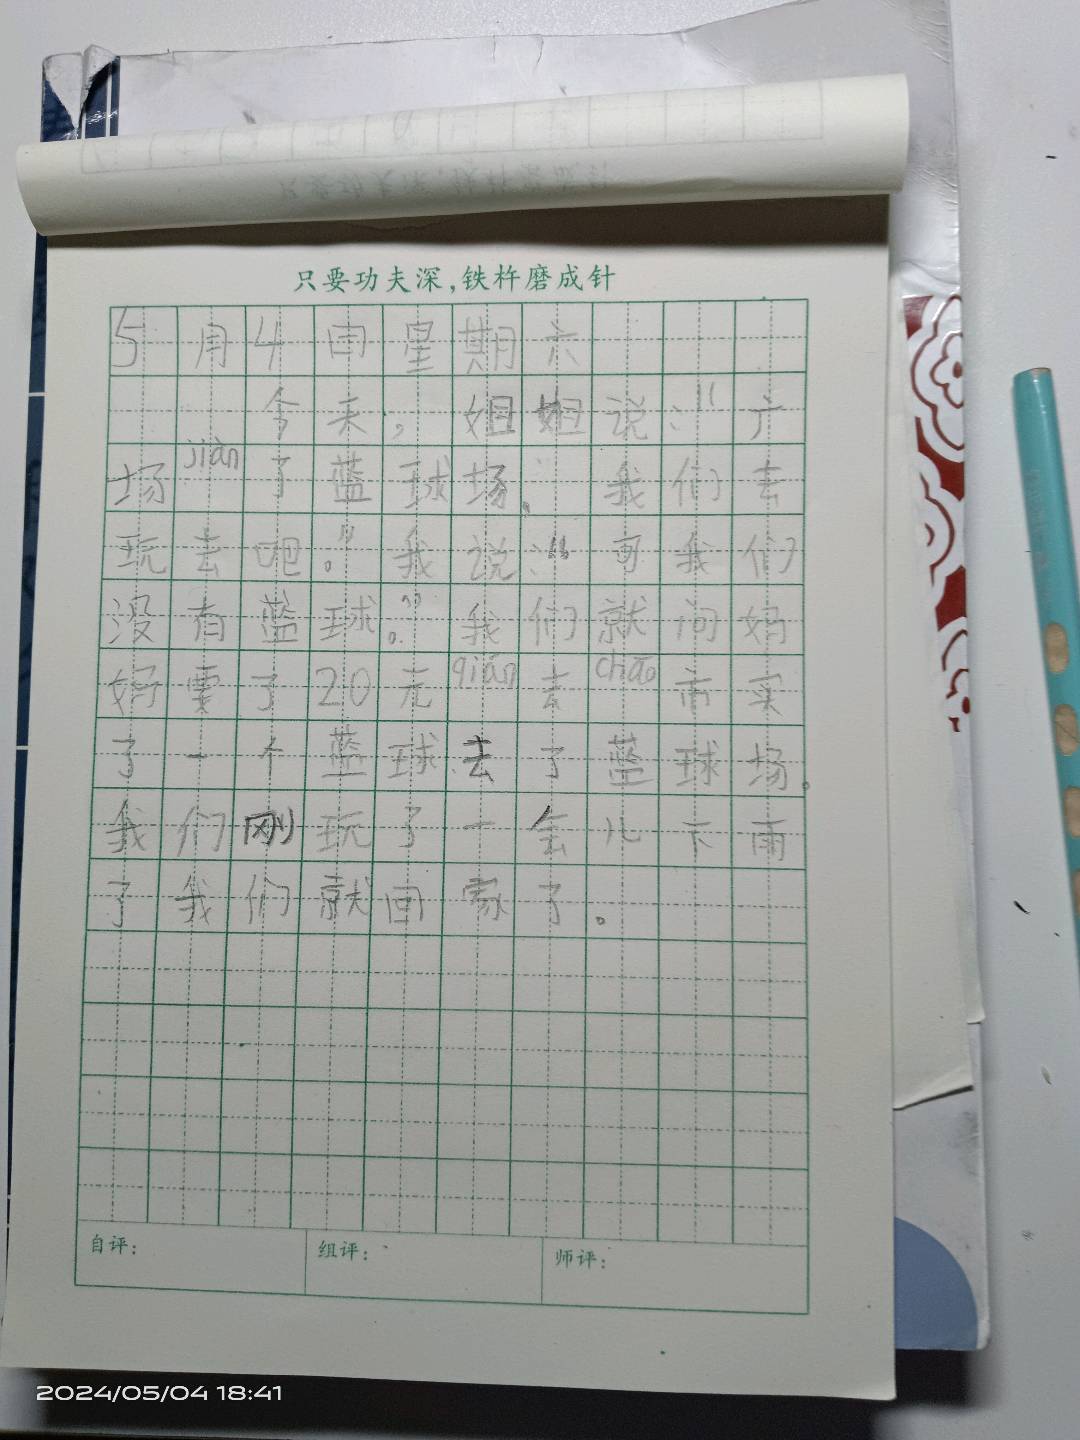 只要功夫深,铁杵磨成针
5月4日星期六
今天,姐姐说:“广
场jiàn了蓝球场。我们去
玩去吧。”我说:“可我们
没有蓝球。”我们就问妈
妈要了20元qián去chāo市买
了一个蓝球去了蓝球场。
我们刚玩了一会儿下雨
了我们就回家了。
自评: 组评: 师评:
2024/05/04 18:41